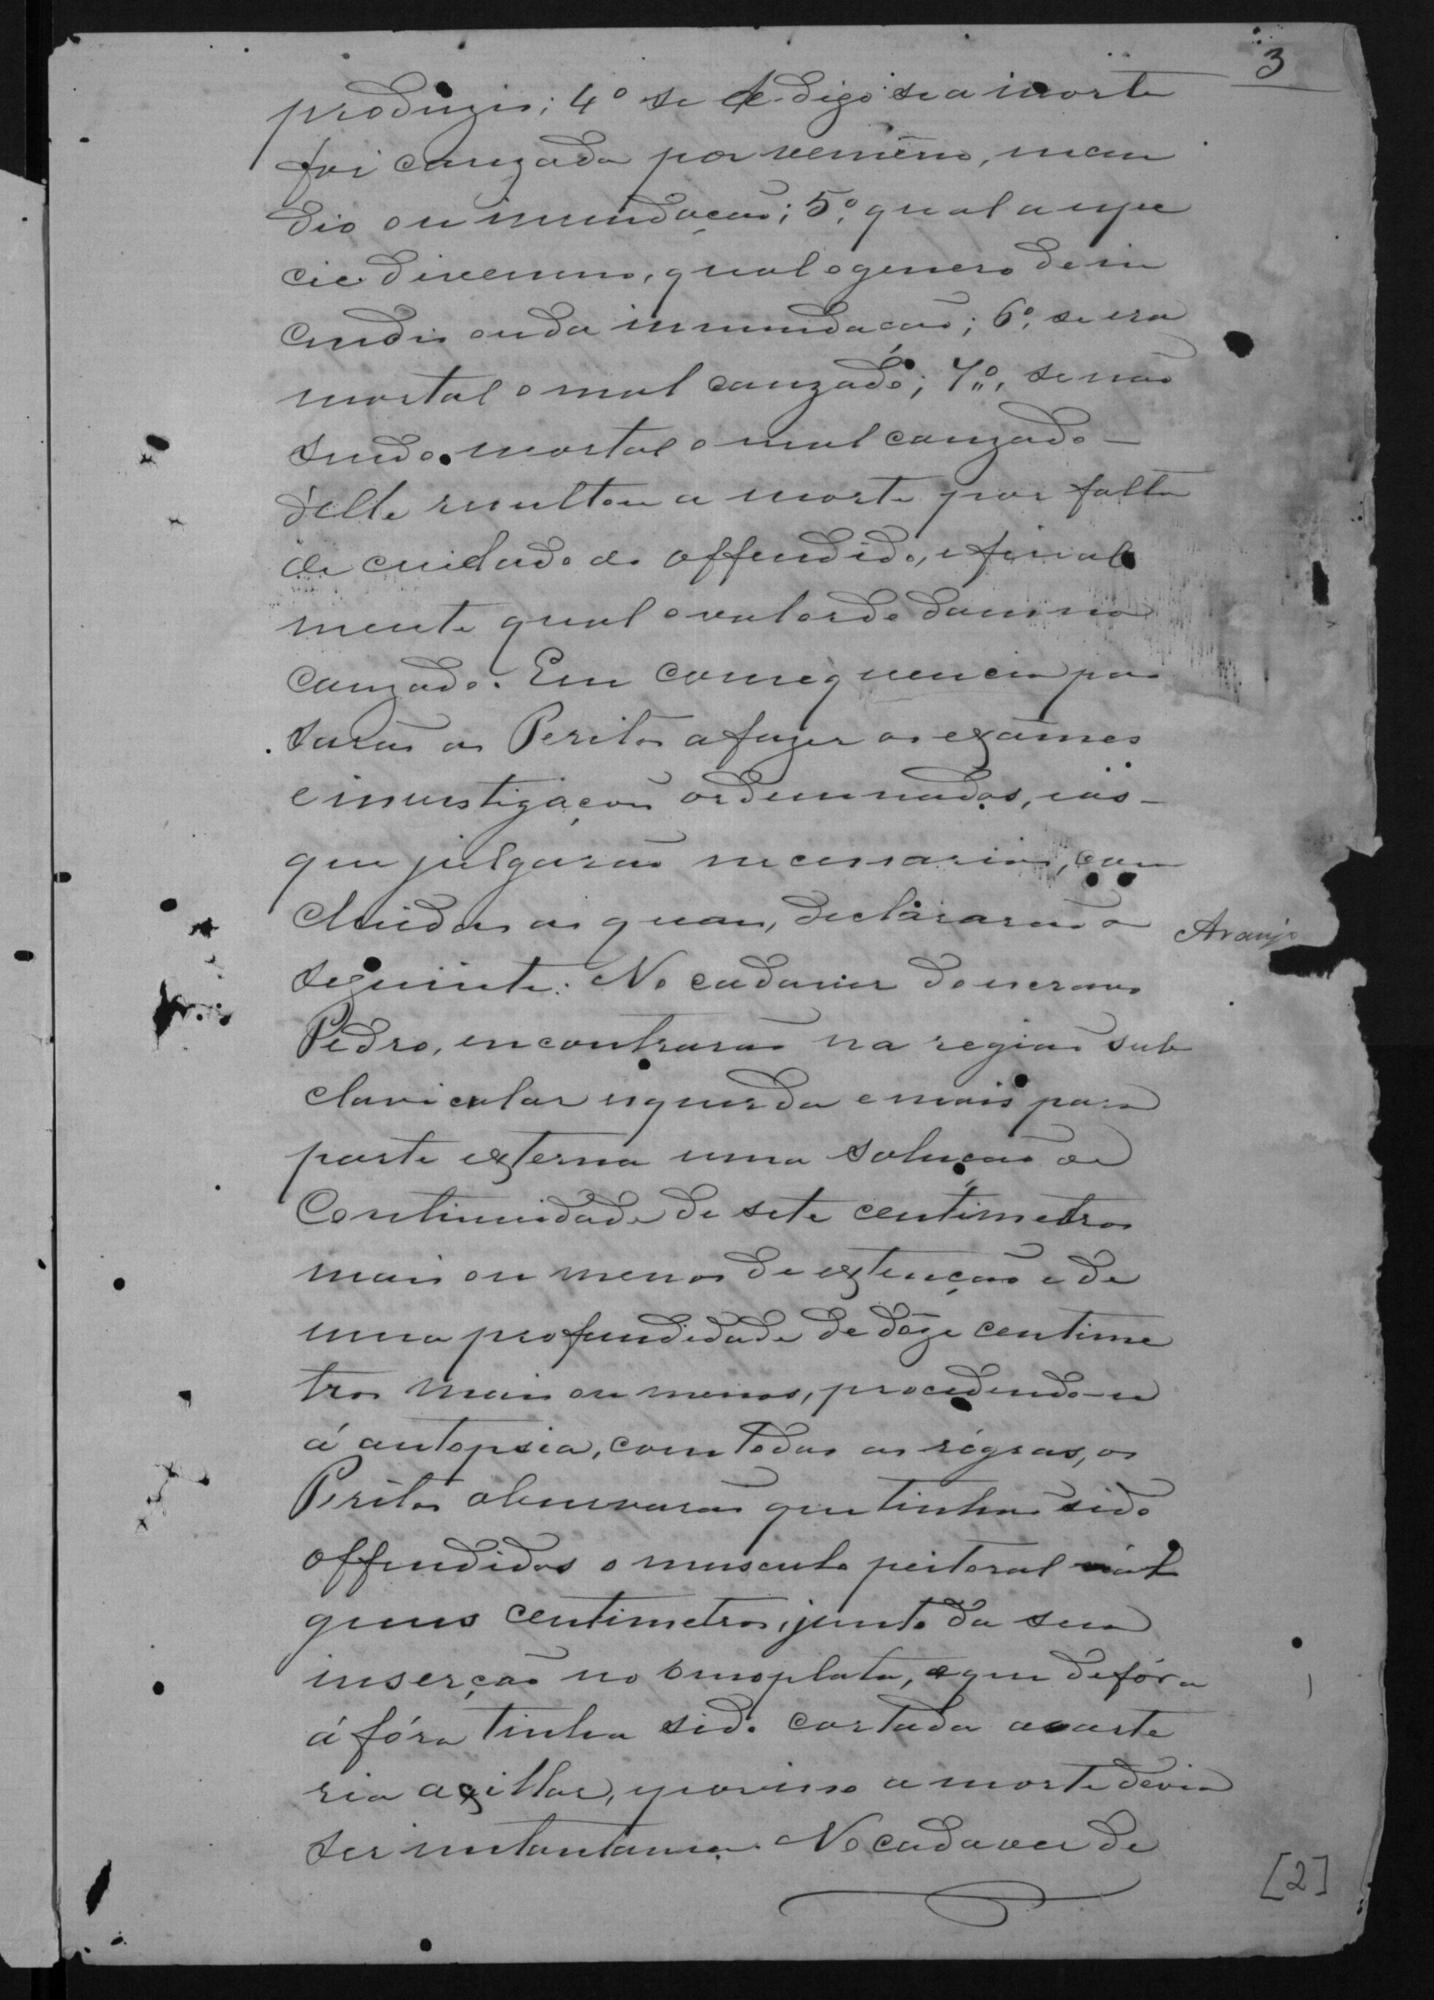 3
produzio; 4º se de digo se a morte
foi cauzada por veneno, incen
dio ou inundação; 5º, qual a espe
cie de veneno, qual o genero do in
cendio ou da innundação; 6º, se era
mortal o mal cauzado; 7º, se não
sendo mortal o mal cauzado
delle resultou a morte por falta
de cuidado do offendido, e final
mente qual o valor do damno
cauzado. Em consequencia pas
sarão os Peritos a fazer os exames
e investigaçoes ordennados, e as
que julgarão necessarias, con
cluidas as quaes, declararão o
Araujo
seguinte: No cadaver do escravo
Pedro, encontrarão na região sub
clavicular esquerda e mais para
parte externa uma solução de
Continuidade de sete centimetros
mais ou menos de extenção e de
uma profundidade de dóze centime
tros mais ou menos, procedendo-se
á autopsia, com todas as régras, os
Peritos observarão que tinhão sido
offendidos o musculo peitoral al
guns centimetros, junto da sua
inserção no omoplata, e que de fóra
á fóra tinha sido cortada a arte
ria axillar, e por isso a morte devia
ser instantanea. No cadaver de
[2]